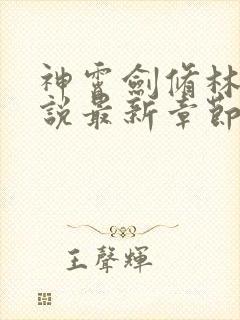 神霄劍脩林
說最新章節
王聲輝